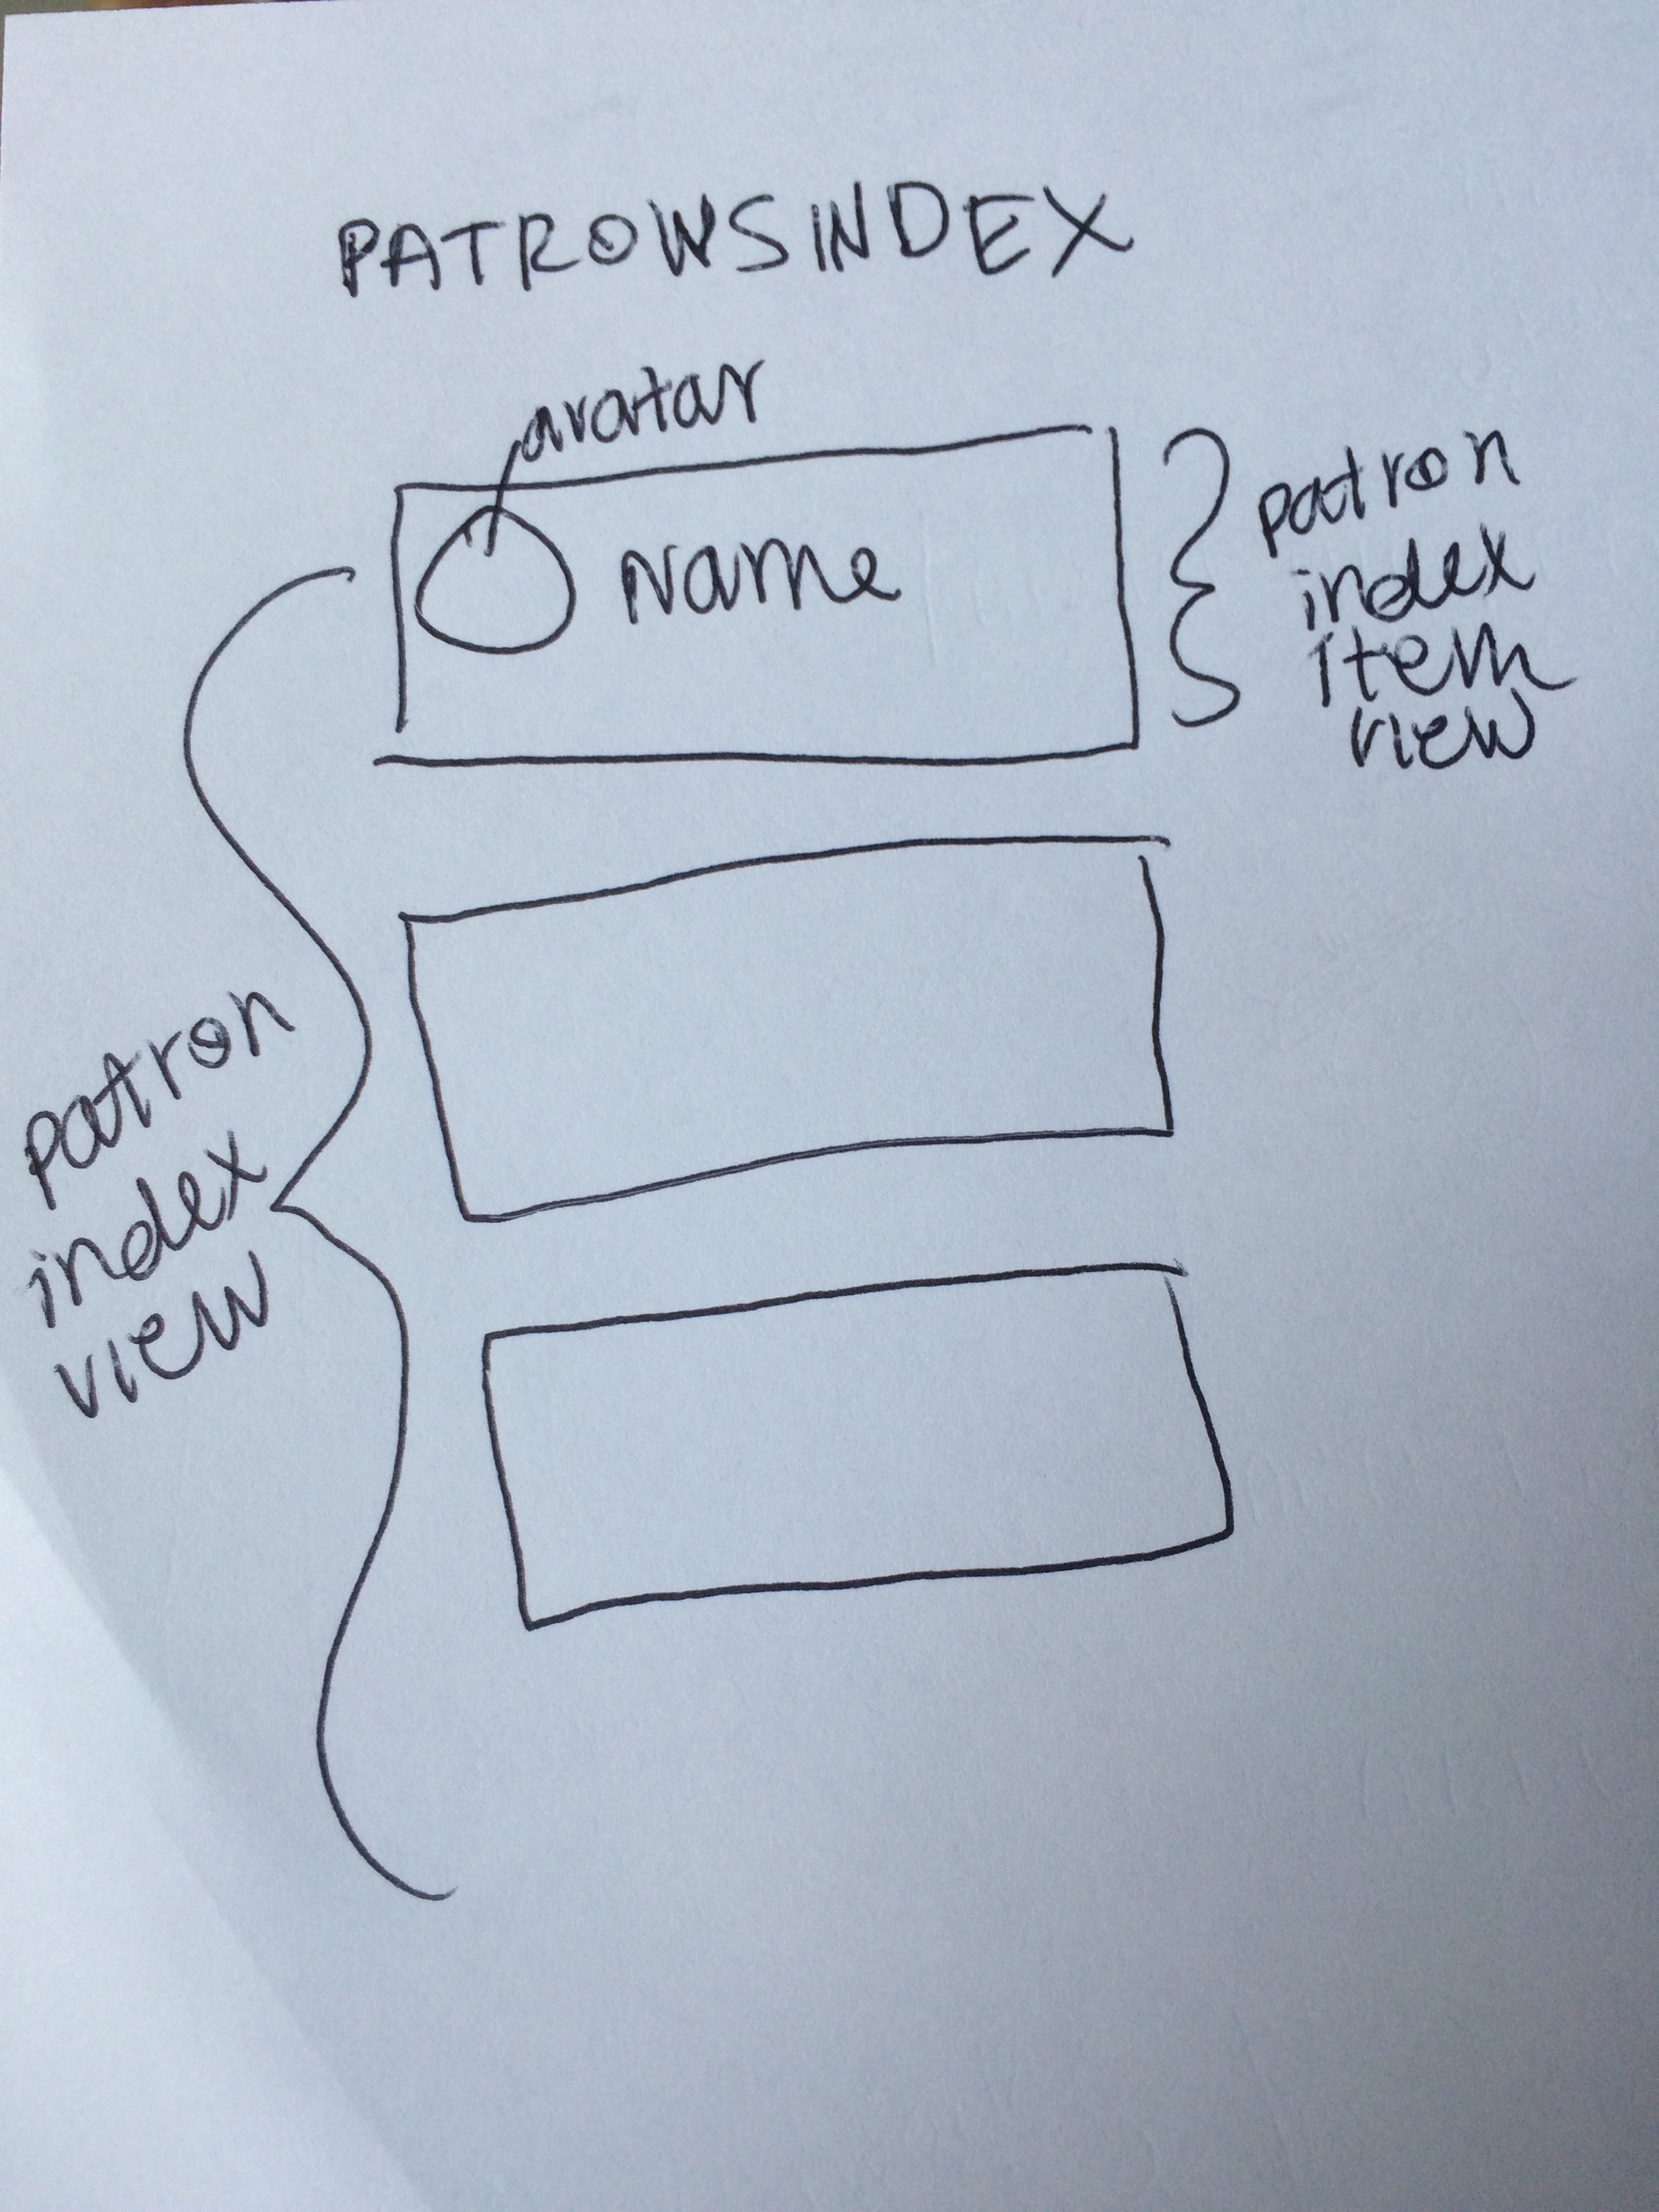 PATRONSINDEX
avatar
Name
patron
index
item
view
patron
index
view